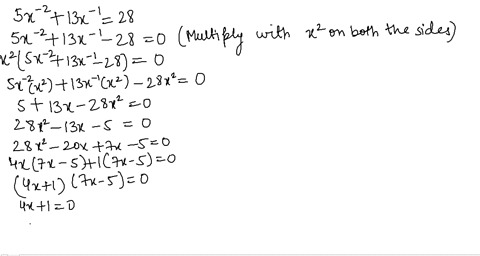 5x⁻² + 13x⁻¹ = 28
5x⁻² + 13x⁻¹ - 28 = 0 (Multiply with x² on both the sides)
x²(5x⁻² + 13x⁻¹ - 28) = 0
5x⁻²(x²) + 13x⁻¹(x²) - 28x² = 0
5 + 13x - 28x² = 0
28x² - 13x - 5 = 0
28x² - 20x + 7x - 5 = 0
4x(7x - 5) + 1(7x - 5) = 0
(4x + 1)(7x - 5) = 0
4x + 1 = 0